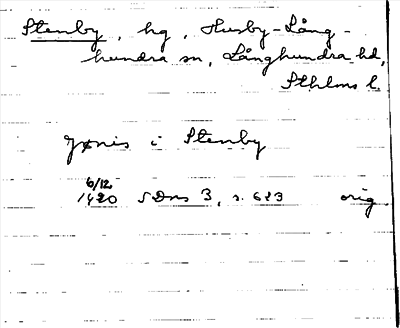 Stenby, hg, Husby-Lång-
hundra sn, Långhundra hd,
Sthlms l.
Jønis i Stenby
6/12
1420 SDns 3, s. 623 orig